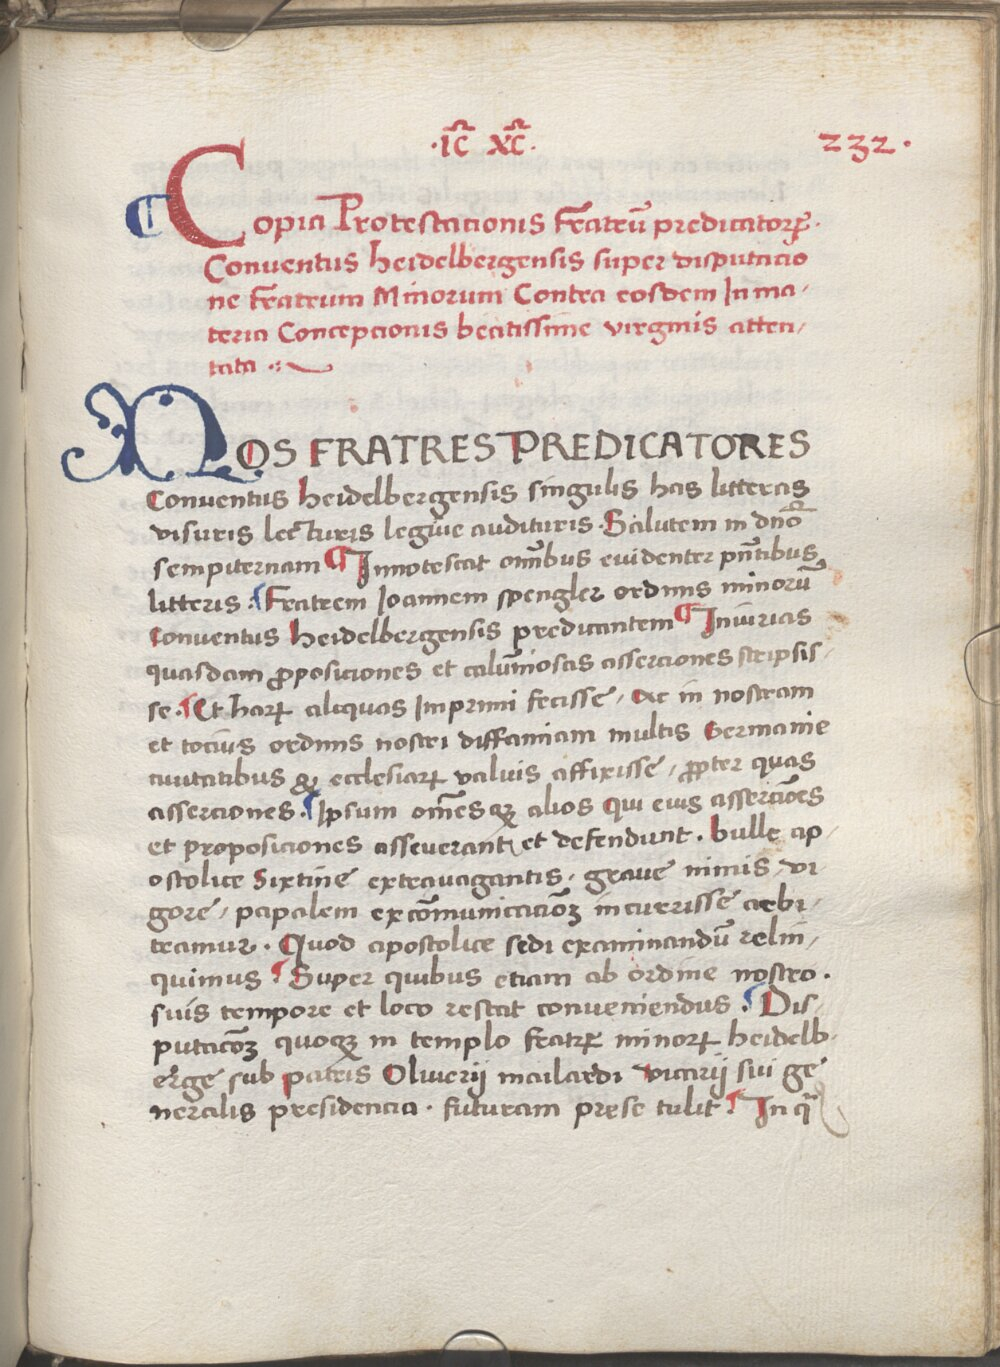 ·ic̅ xc̅· 232·
¶ Copia Protestacionis Fratrū predicatorꝝ·
Conventus heidelbergensis super disputacio
ne Fratrum Minorum Contra eosdem In ma/
teria Concepcionis beatissime virginis atten/
tata
NOS FRATRES PREDICATORES
Conventus heidelbergensis singulis has litteras
visuris lecturis legi̅ve audituris· Salutem in dn̅o
sempiternam ¶ Innotescat om̅ibus evidenter pn̅tibus
litteris· ¶ Fratrem Ioannem spengler ordinis minorū
Conventus heidelbergensis predicantem ¶ Iniurias
quasdam ꝓposiciones et calum̅iosas asserciones scripsis/
se· ¶ Et harꝝ aliquas Imprimi fecisse/ Ac in nostram
et tocius ordinis nostri diffamiam multis Germanie
civitatibus ecclesiarꝝ valvis affixisse/ ꝓpter quas
asserciones· ¶ Ipsum om̅esqꝫ alios Qui eius asserciōes
et proposiciones asseverant et defendunt· bulle ap/
ostolice Sixtine extravagantis· grave nimis/ vi
gore/ papalem excōmunicaciōꝫ incurrisse arbi/
tramur· Quod apostolice sedi examinandū relin/
quimus ¶ Super quibus etiam ab ordine nostro·
suis tempore et loco restat conveniendus· ¶ Dis/
putaciōꝫ quoqꝫ in templo fratrꝝ minorꝝ heidelb·
erge sub patris Oliverij mailardi vicarij sui ge
neralis presidencia· futuram prese tulit ¶ In q̅